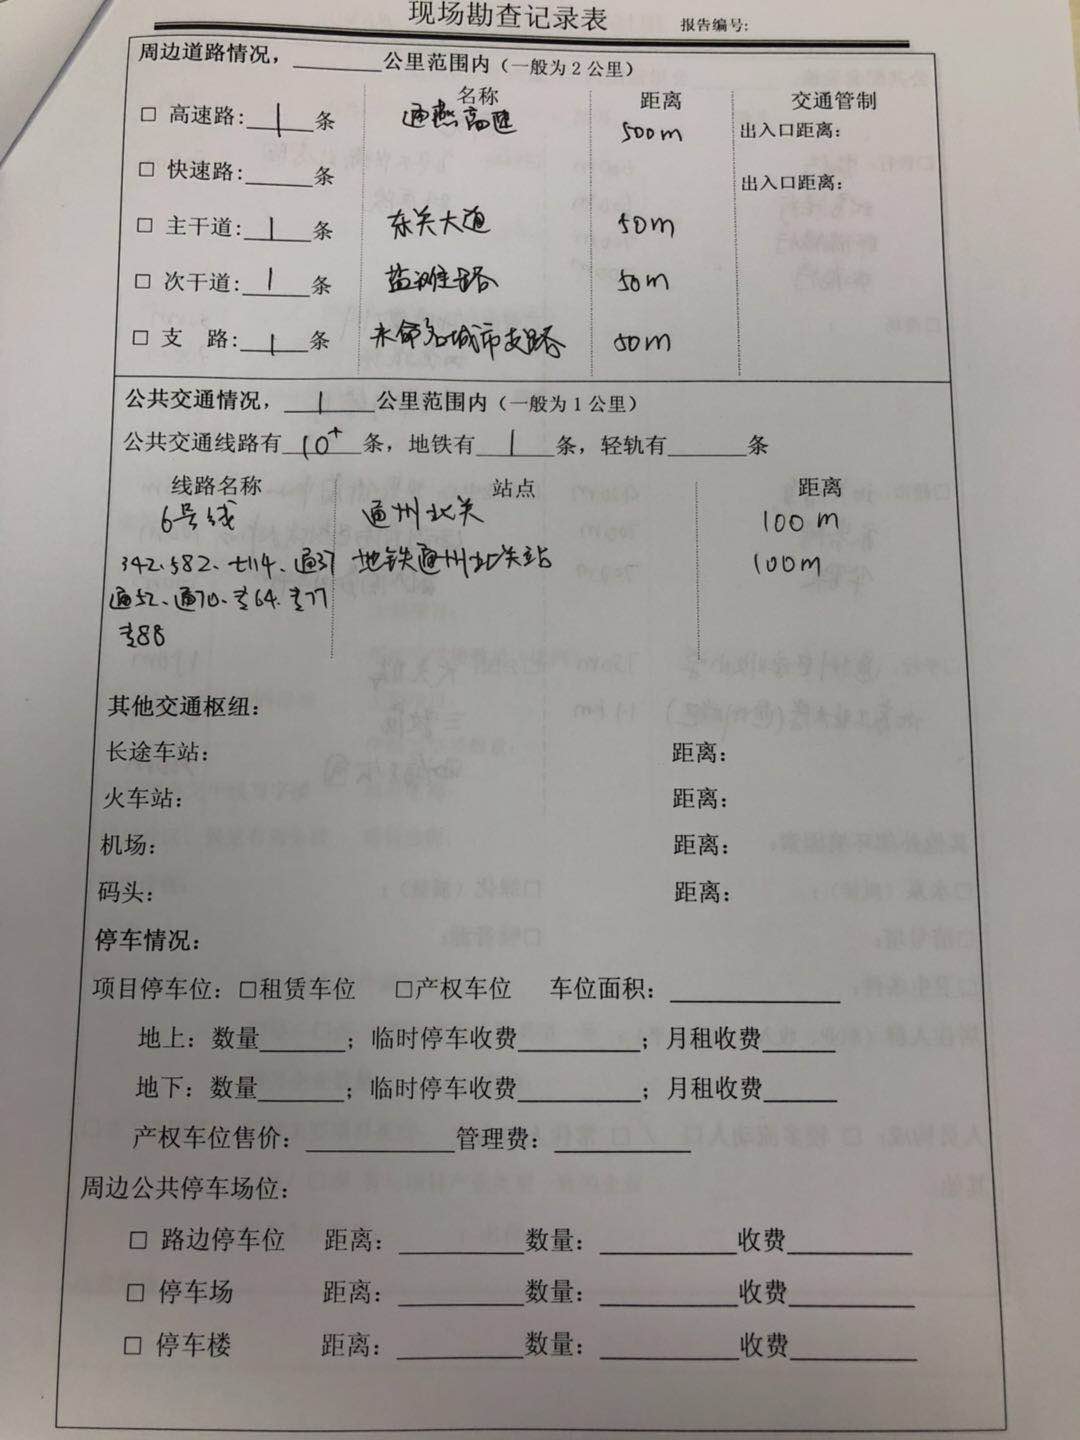 现场勘查记录表 报告编号:
周边道路情况，________公里范围内（一般为2公里）
名称 距离 交通管制
□ 高速路: 1 条 通燕高速 500m 出入口距离：
□ 快速路:____条 出入口距离：
□ 主干道: 1 条 东关大道 50m
□ 次干道: 1 条 盐滩路 50m
□ 支 路: 1 条 未命名城市支路 50m
公共交通情况， 1 公里范围内（一般为1公里）
公共交通线路有 10+ 条，地铁有 1 条，轻轨有______条
线路名称 站点 距离
6号线 通州北关 100m
342、582、T114、通37 地铁通州北关站 100m
通52、通70、专64、专77
专88
其他交通枢纽：
长途车站： 距离：
火车站： 距离：
机场： 距离：
码头： 距离：
停车情况：
项目停车位：□租赁车位 □产权车位 车位面积：____________
地上：数量______；临时停车收费________；月租收费______
地下：数量______；临时停车收费________；月租收费______
产权车位售价：__________管理费：__________
周边公共停车场位：
□ 路边停车位 距离：________数量：__________收费________
□ 停车场 距离：________数量：__________收费________
□ 停车楼 距离：________数量：__________收费________